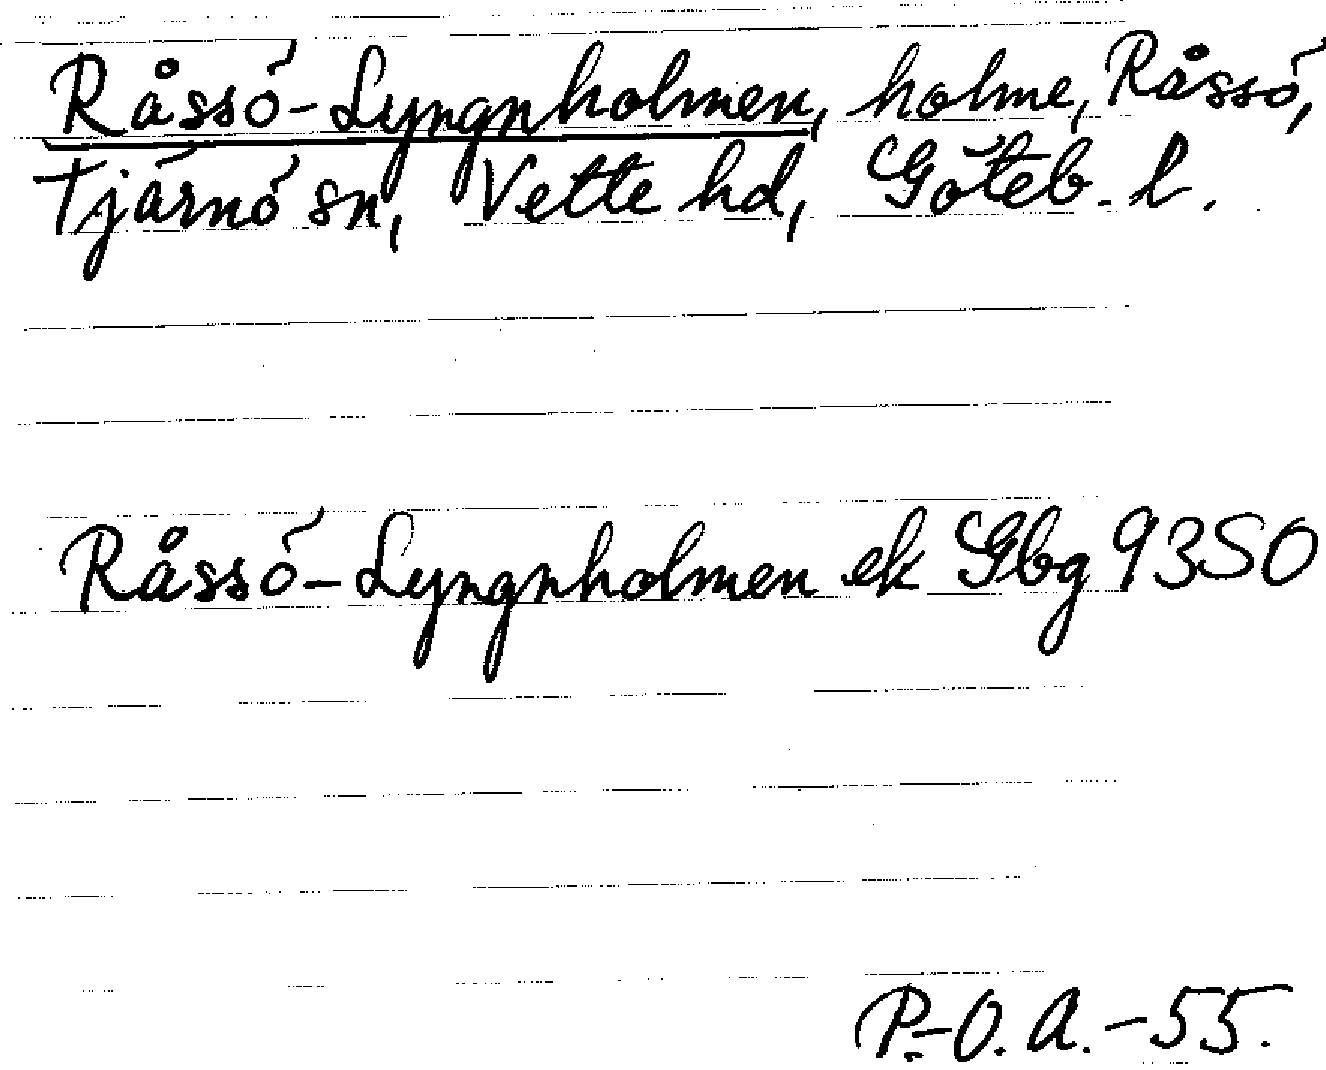 Råssö-Lyngnholmen, holme, Råssö,
Tjärnö sn, Vette hd, Göteb. l.
Råssö-Lyngnholmen ek Gbg 9350
P.-O. A. -55.